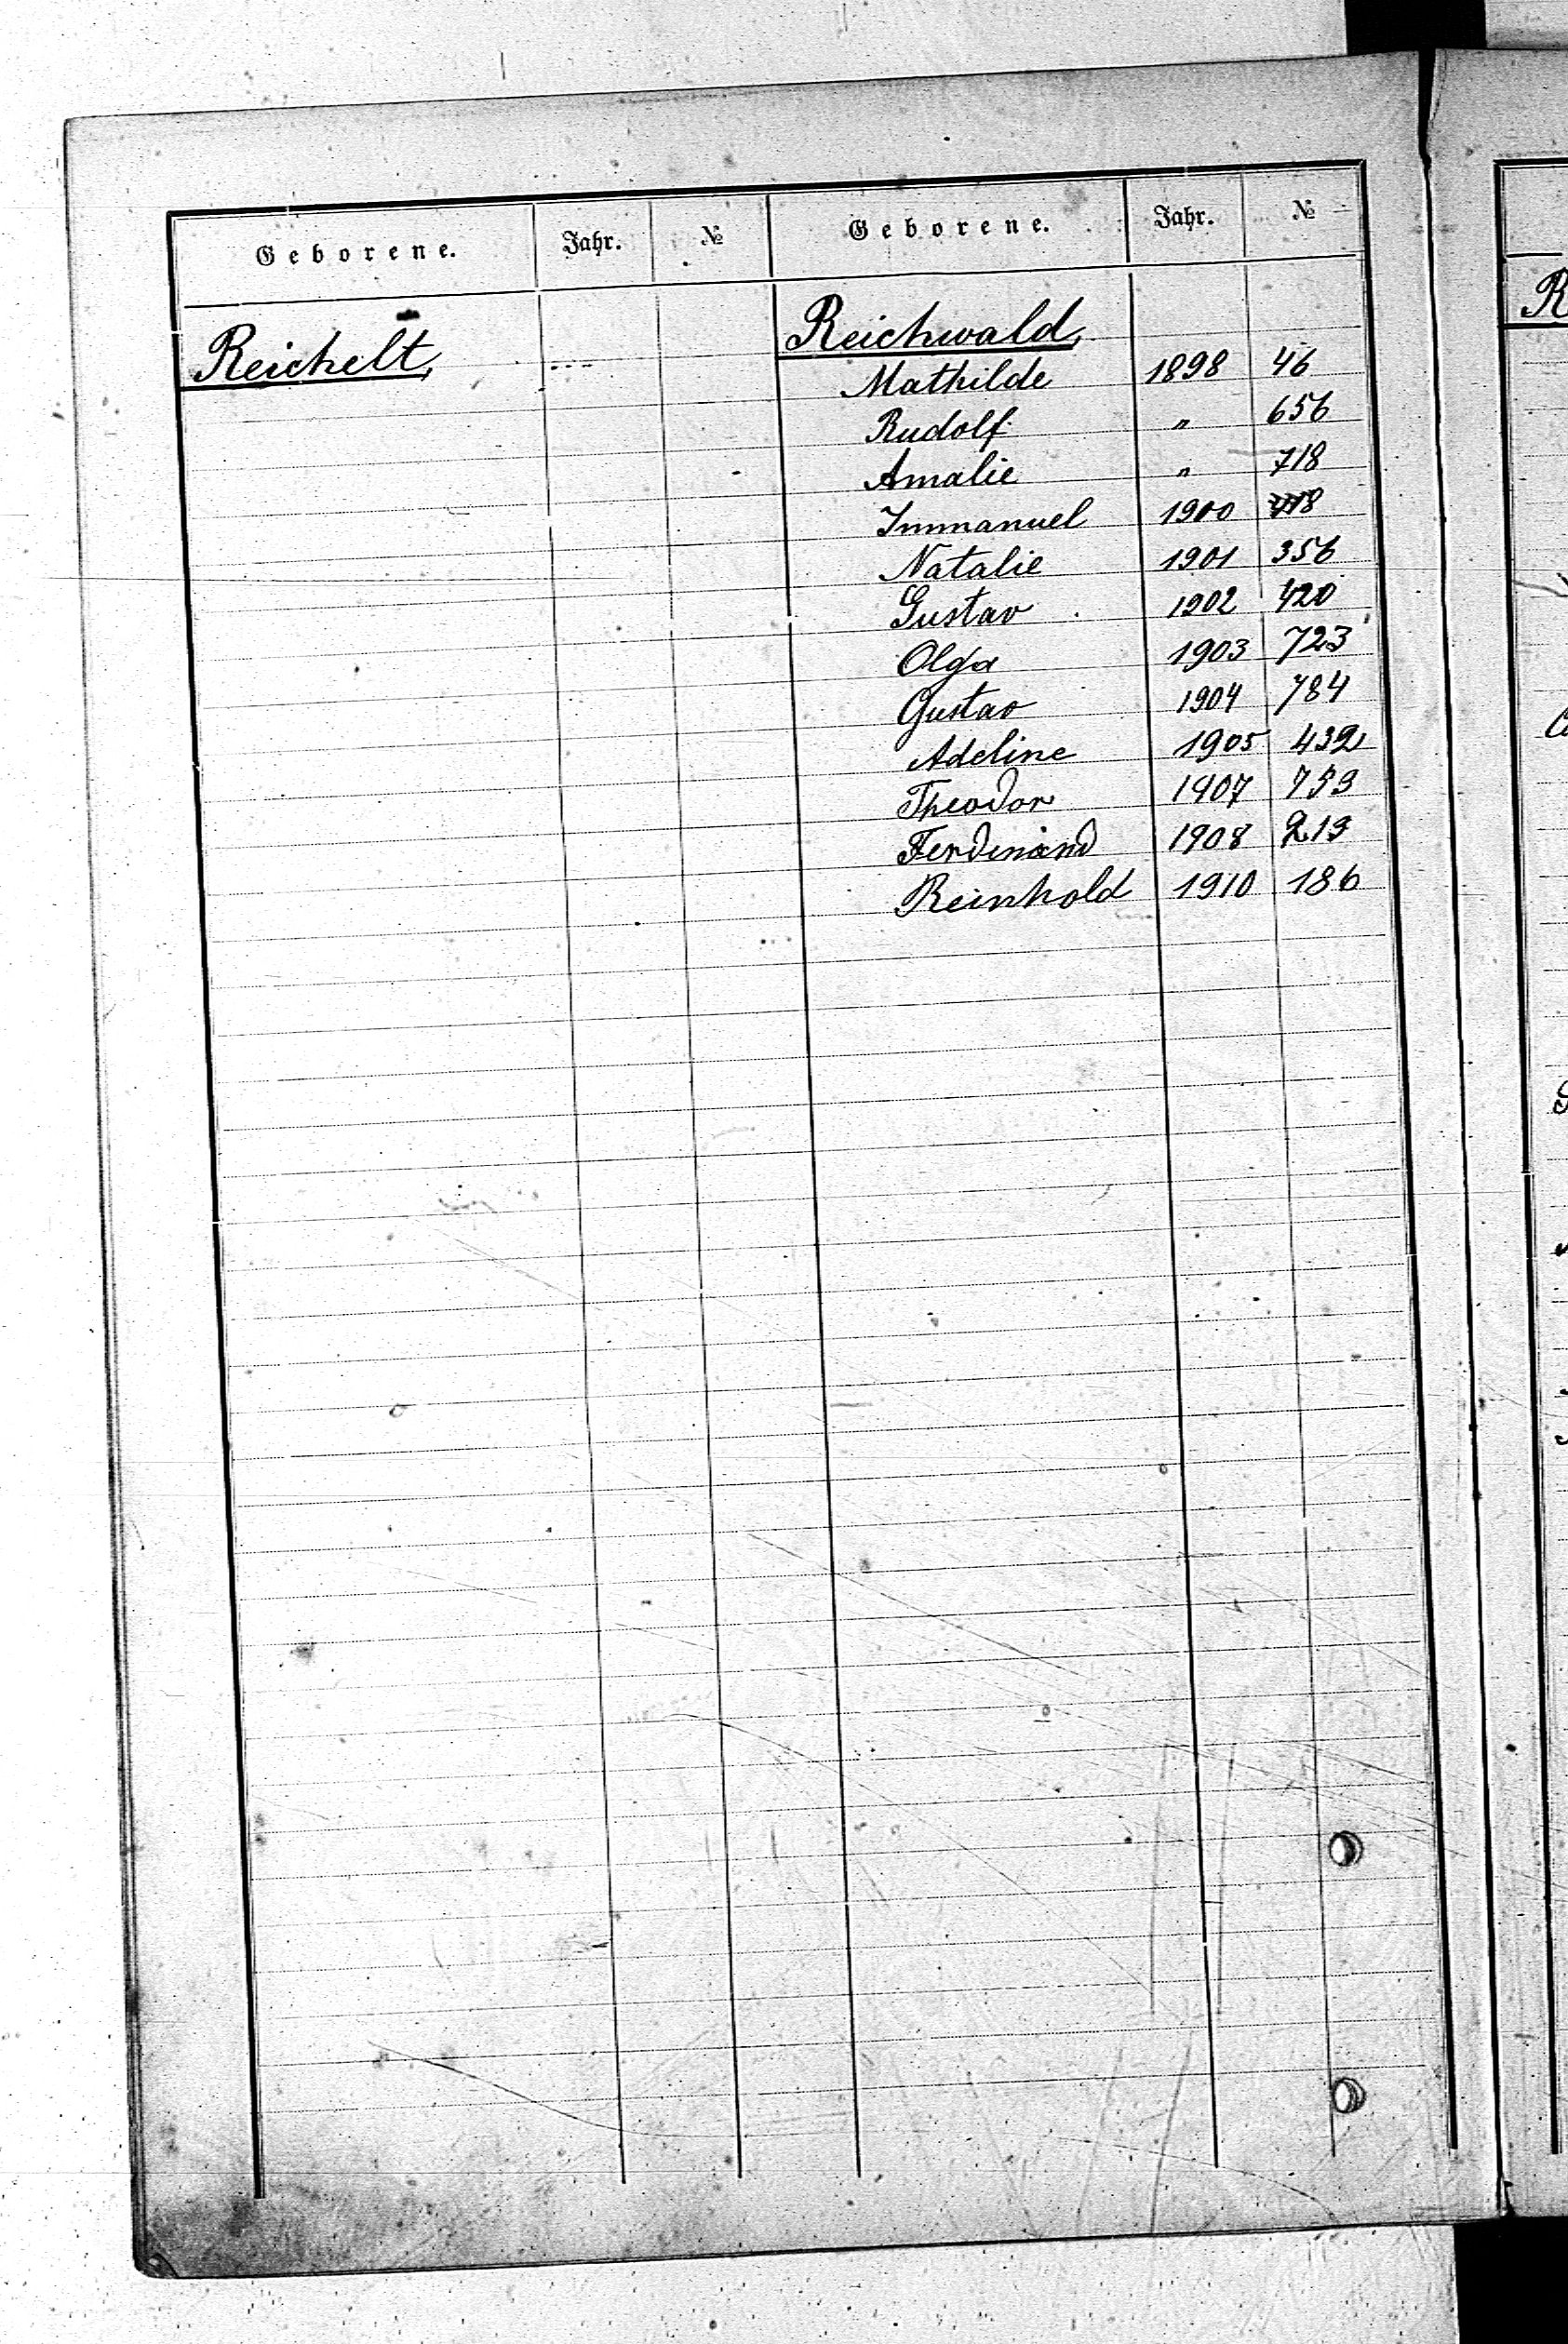 Geborene. Jahr. № Geborene. Jahr. №
Reichelt,
Reichwald,
Mathilde 1898 46
Rudolf 〃 656
Amalie 〃 718
Immanuel 1900
Natalie 1901 356
Gustav 1902 420
Olga 1903 723
Gustav 1904 784
Adeline 1905 432
Theodor 1907 753
Ferdinand 1908 213
Reinhold 1910 186